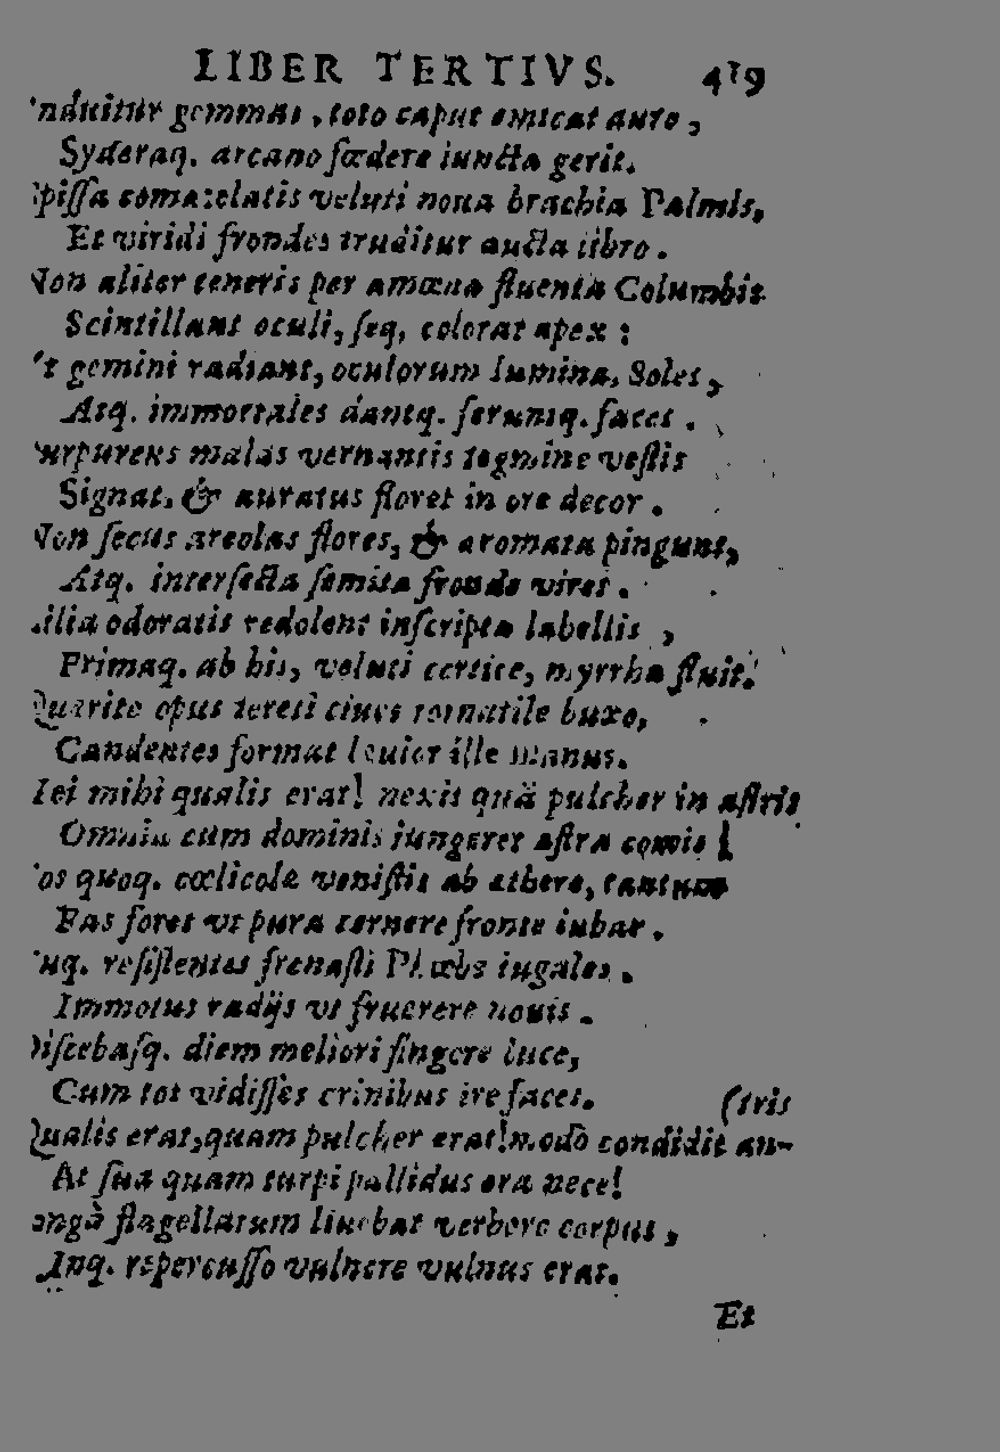 LIBER TERTIVS. 419
nduitur gemmas, toto caput emicat auro,
Syderaq. arcano fœdere iuncta gerit.
spissa coma: elatis veluti noua brachia Palmis,
Et viridi frondes truditur aucta libro.
Non aliter teneris per amœna fluenta Columbis
Scintillant oculi, seq, colorat apex:
t gemini radiant, oculorum lumina, Soles,
Atq. immortales dantq. feruntq. faces.
urpureus malas vernantis tegmine vestis
Signat, & auratus floret in ore decor.
Non secus areolas flores, & aromata pingunt,
Atq. intersecta semita fronde viret.
ilia odoratis redolent inscripta labellis,
Primaq. ab his, veluti cortice, myrrha fluit.
Quærite opus tereti ciues tornatile buxo,
Candentes format leuior ille manus.
Hei mihi qualis erat! nexis quã pulcher in astris
Omnia cum dominis iungeret astra comis!
os quoq. cœlicolæ venistis ab æthere, tantum
Fas foret vt pura cernere fronte iubar.
uq. resistentes frenasti Phœbe iugales.
Immotus radijs vt fruerere nouis.
Discebasq. diem meliori fingere luce,
Cum tot vidisses crinibus ire faces.
Qualis erat, quam pulcher erat! modo condidit an- (tris
At sua quam turpi pallidus ora nece!
ongà flagellatum liuebat verbere corpus,
Inq. repercusso vulnere vulnus erat.
Et